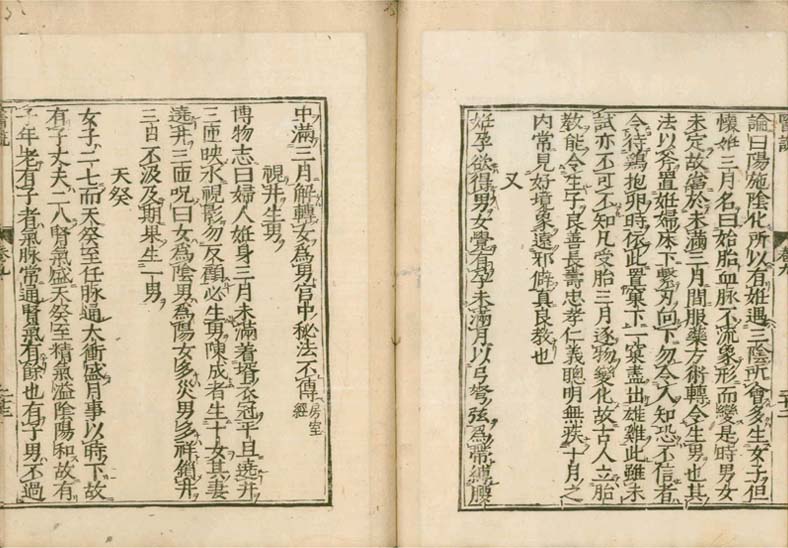 論曰陽施陰化所以有姙遇三陰所會多生女子但
懷姙三月名曰始胎血脉不流象形而變是時男女
未定故當於未滿三月間服藥方術轉令生男也其
法以斧置姙婦床下繫刃向下勿令人知恐不信者
令待鷄抱卵時依此置窠下一窠盡出雄雞此雖未
試亦不可不知凡受胎三月逐物變化故古人立胎
教能令生子良善長壽忠孝仁義聰明無疾十月之
内常見好境象遠邪僻真良教也
又
姙孕欲得男女覺有孕未滿月以弓弩弦爲帶縛腰
中滿三月解轉女爲男宫中秘法不傳房室經
視井生男
博物志曰婦人姙身三月未滿着壻衣冠平旦遶井
三匝映水視影勿反顧必生男陳成者生十女其妻
遶井三匝呪曰女爲陰男爲陽女多災男多祥鎖井
三日不汲及期果生一男
天癸
女子二七而天癸至任脉通太衝盛月事以時下故
有子丈夫二八腎氣盛天癸至精氣溢陰陽和故有
子年老有子者氣脉常通腎氣有餘也有子男不過
醫說
卷九